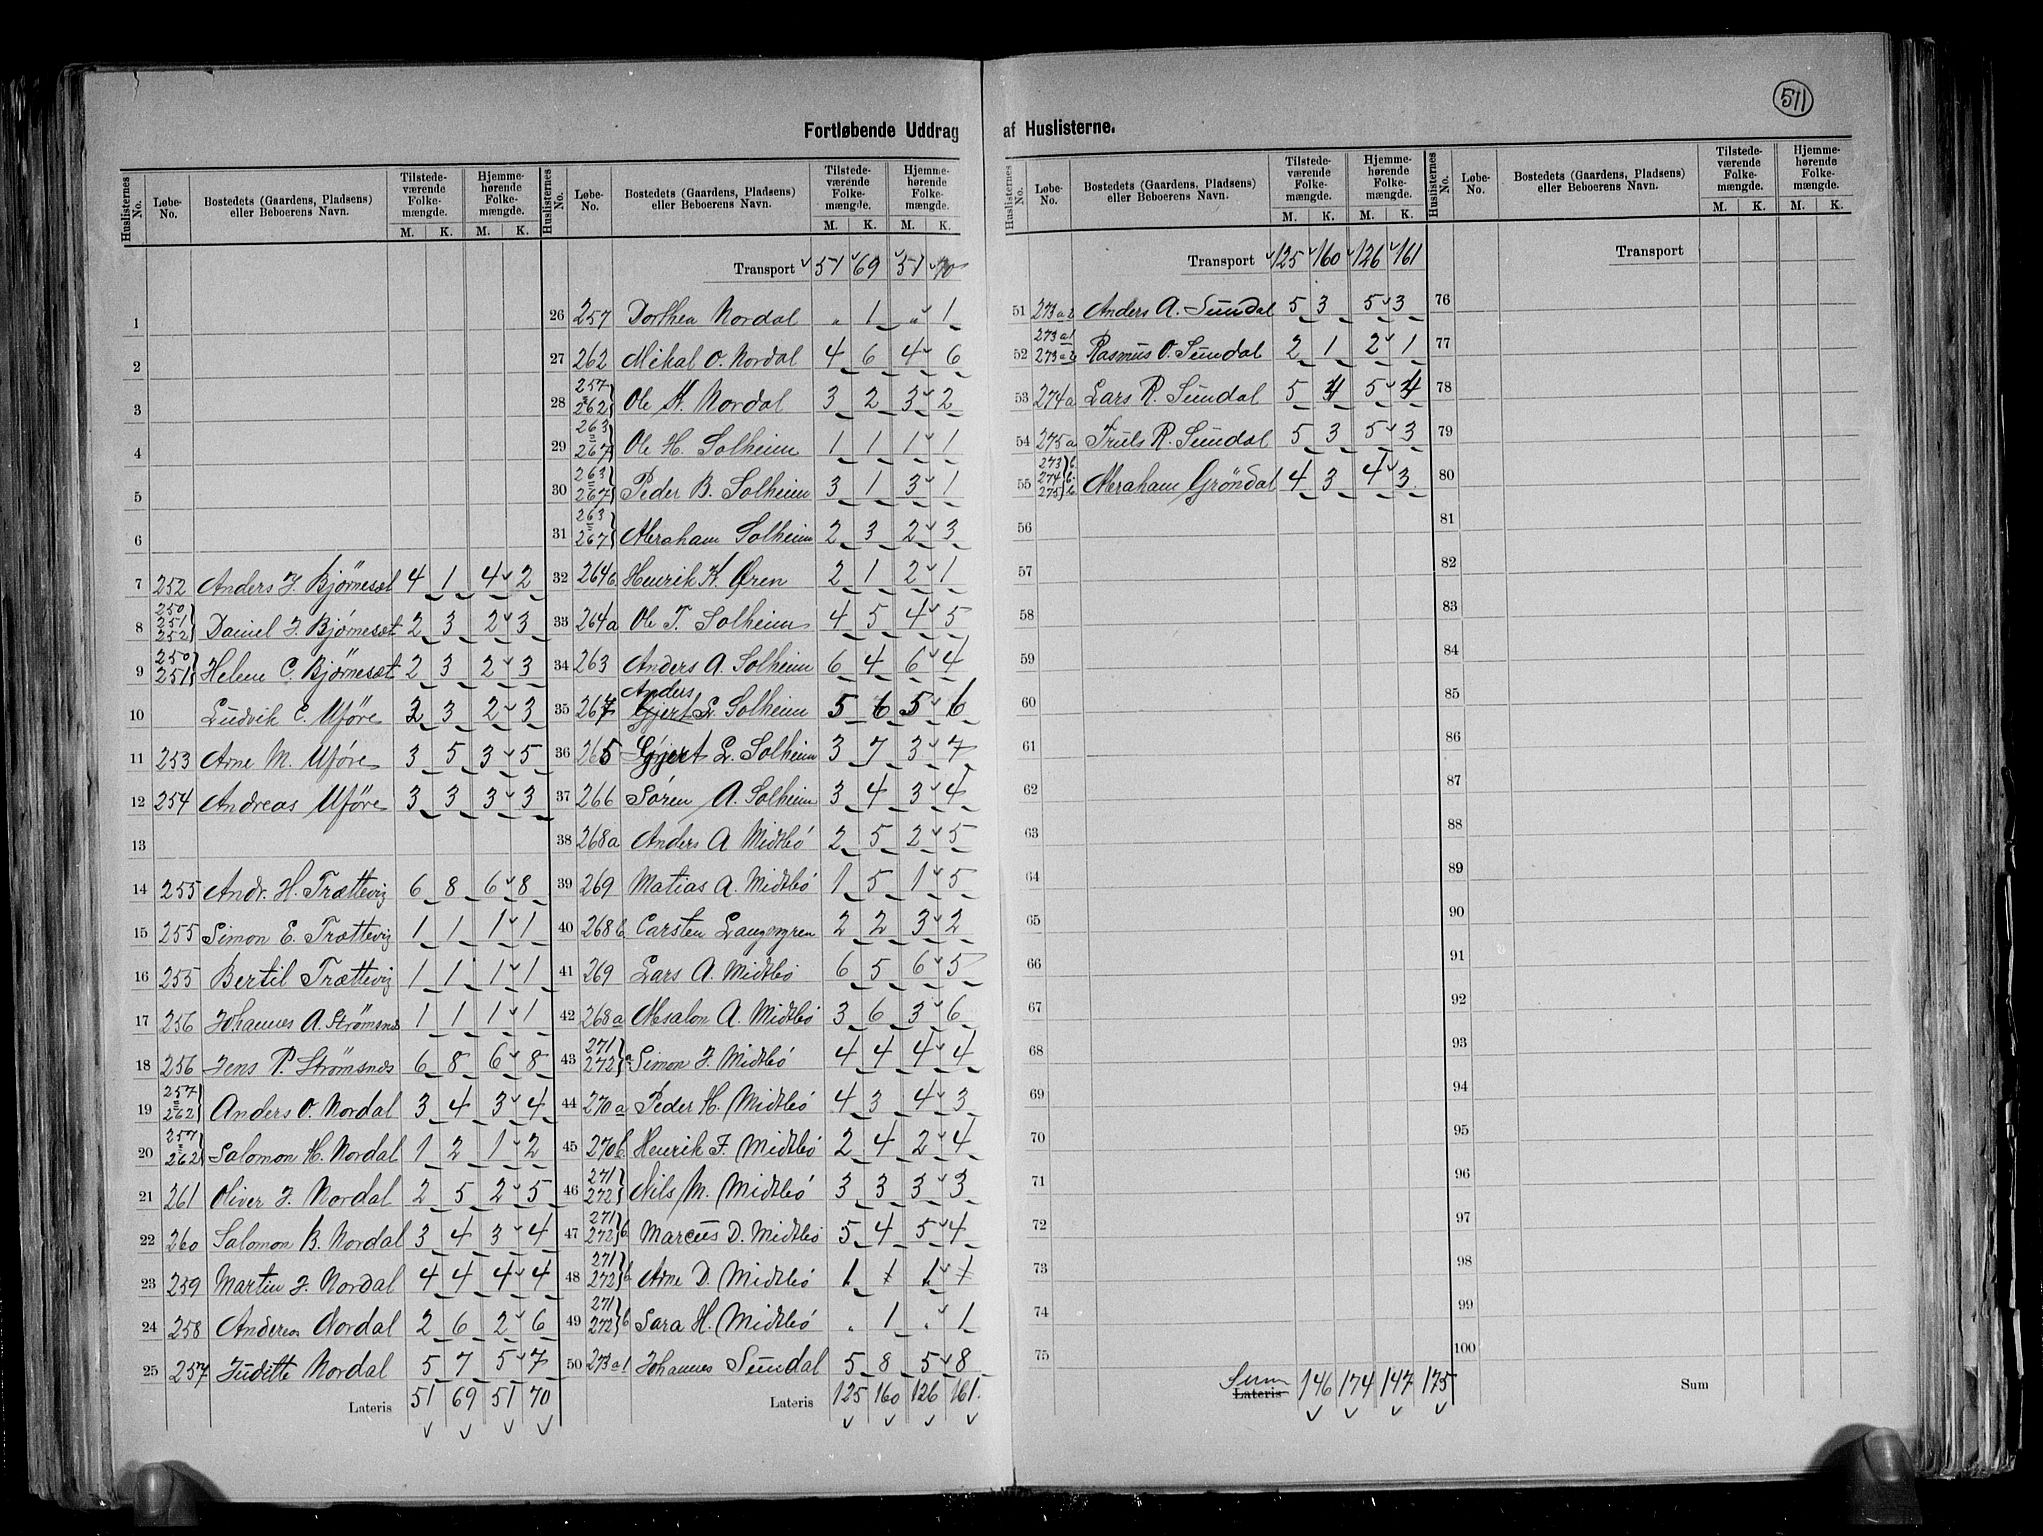 511
Fortløbende Uddrag af Huslisterne.
Huslisternes No. Løbe-No. Bostedets (Gaardens, Pladsens) eller Beboerens Navn. Tilstedeværende Folkemængde. M. K. Hjemmehørende Folkemængde. M. K.
1
2
3
4
5
6
7 252 Anders J. Bjørneset 4 1 4 2
8 250 251 252 Daniel J. Bjørneset 2 3 2 3
9 250 251 Helene C. Bjørneset 2 3 2 3
10 Ludvik C. Uføre 2 3 2 3
11 253 Arne M. Uføre 3 5 3 5
12 254 Andreas Uføre 3 3 3 3
13
14 255 Andr. H. Trættevig 6 8 6 8
15 255 Simon E. Trættevig 1 1 1 1
16 255 Bertil Trættevig 1 1 1 1
17 256 Johannes A. Strømsnes 1 1 1 1
18 256 Jens P. Strømsnes 6 8 6 8
19 257 = 262 Anders O. Nordal 3 4 3 4
20 257 = 262 Salomon H. Nordal 1 2 1 2
21 261 Oliver J. Nordal 2 5 2 5
22 260 Salomon B. Nordal 3 4 3 4
23 259 Martin J. Nordal 4 4 4 4
24 258 Andreas Nordal 2 6 2 6
25 257 Juditte Nordal 5 7 5 7
Lateris 51 69 51 70
Huslisternes No. Løbe-No. Bostedets (Gaardens, Pladsens) eller Beboerens Navn. Tilstedeværende Folkemængde. M. K. Hjemmehørende Folkemængde. M. K.
Transport 51 69 51 70
26 257 Dorthea Nordal " 1 " 1
27 262 Mikal O. Nordal 4 6 4 6
28 257 = 262 Ole M. Nordal 3 2 3 2
29 263 = 267 Ole H. Solheim 1 1 1 1
30 263 = 267 Peder B. Solheim 3 1 3 1
31 263 = 267 Abraham Solheim 2 3 2 3
32 264b Henrik K. Øren 2 1 2 1
33 264a Ole T. Solheim 4 5 4 5
34 263 Anders A. Solheim 6 4 6 4
35 267 Anders L. Solheim 5 6 5 6
36 265 Gjert L. Solheim 3 7 3 7
37 266 Søren A. Solheim 3 4 3 4
38 268a Anders A. Midtbø 2 5 2 5
39 269 Matias A. Midtbø 1 5 1 5
40 268b Carsten 2 2 3 2
41 269 Lars A. Midtbø 6 5 6 5
42 268a Absalon A. Midtbø 3 6 3 6
43 271 272 a Simon J. Midtbø 4 4 4 4
44 270a Peder H. Midtbø 4 3 4 3
45 270b Henrik F. Midtbø 2 4 2 4
46 271 272 Nils M. Midtbø 3 3 3 3
47 271 272 b Marcus D. Midtbø 5 4 5 4
48 271 272 b Arne D. Midtbø 1 1 1 1
49 271 272 b Sara H. Midtbø " 1 " 1
50 273a1 Johannes Sundal 5 8 5 8
Lateris 125 160 126 161
Huslisternes No. Løbe-No. Bostedets (Gaardens, Pladsens) eller Beboerens Navn. Tilstedeværende Folkemængde. M. K. Hjemmehørende Folkemængde. M. K.
Transport 125 160 126 161
51 273a2 Anders A. Sundal 5 3 5 3
52 273a1 273a2 Rasmus O. Sundal 2 1 2 1
53 274a Lars R. Sundal 5 4 5 4
54 275a Truls R. Sundal 5 3 5 3
55 273 274 275 b Abraham Grøndal 4 3 4 3
56
57
58
59
60
61
62
63
64
65
66
67
68
69
70
71
72
73
74
75
Sum Lateris 146 174 147 175
Huslisternes No. Løbe-No. Bostedets (Gaardens, Pladsens) eller Beboerens Navn. Tilstedeværende Folkemængde. M. K. Hjemmehørende Folkemængde. M. K.
Transport
76
77
78
79
80
81
82
83
84
85
86
87
88
89
90
91
92
93
94
95
96
97
98
99
100
Sum